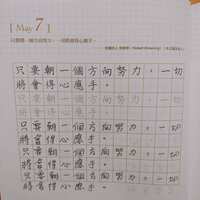 [ May 7 ]
只要朝一個方向努力，一切將會得心應手。
只要朝一個方向努力，一切
將會得心應手。
只要朝一個方向努力，一切
將會得心應手。
只要朝一個方向努力，一切
將會得心應手。
只要朝一個方向努力，一切
將會得心應手。